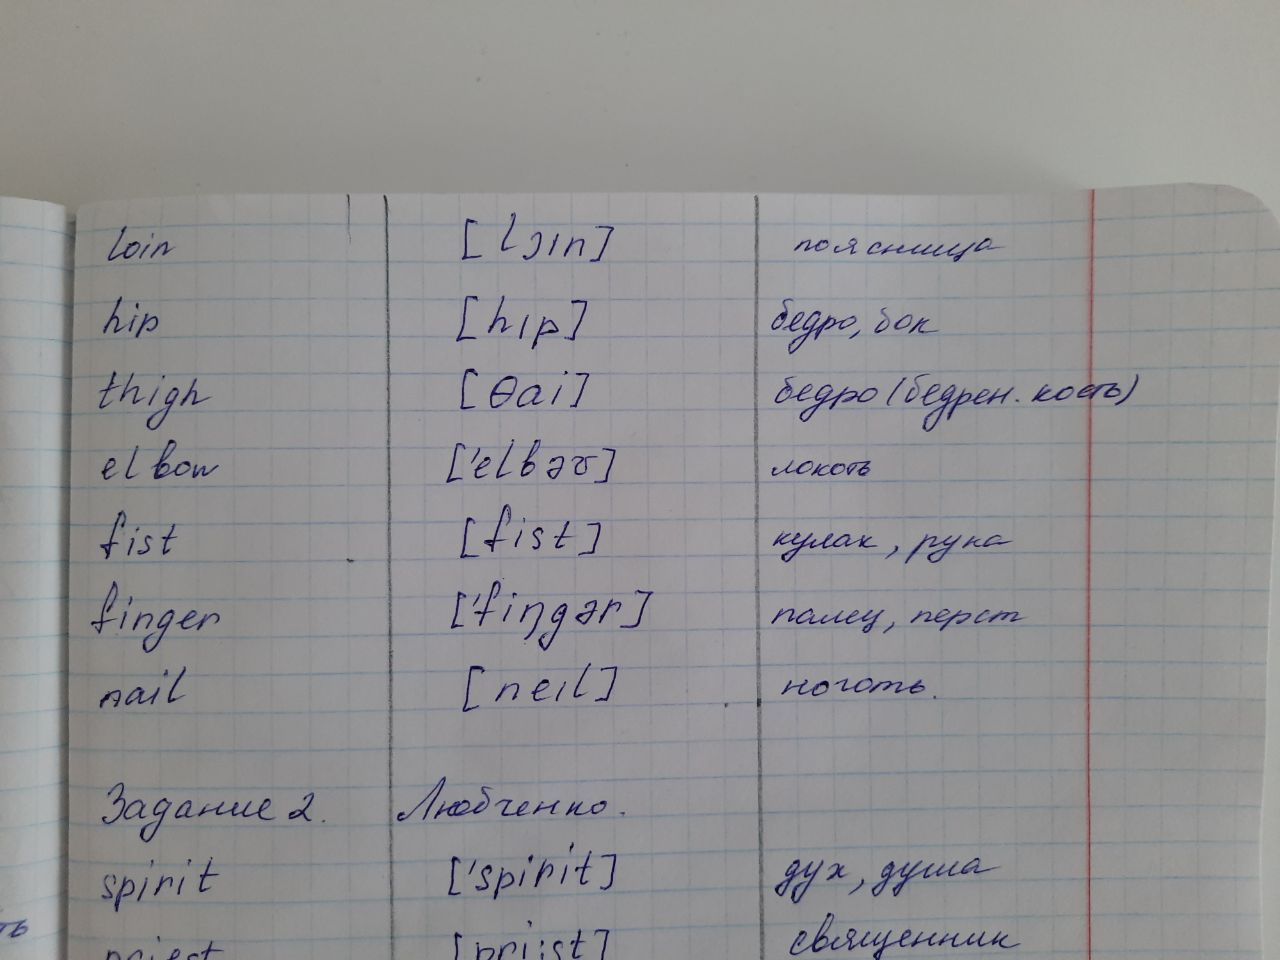 loin [lɔın] поясница
hip [hıp] бедро, бок
thigh [θai] бедро (бедрен. кость)
elbow ['elbəʊ] локоть
fist [fist] кулак, рука
finger ['fiŋgər] палец, перст
nail [neıl] ноготь.
Задание 2. Любченко.
spirit ['spirit] дух, душа
priest [pri:st] священник